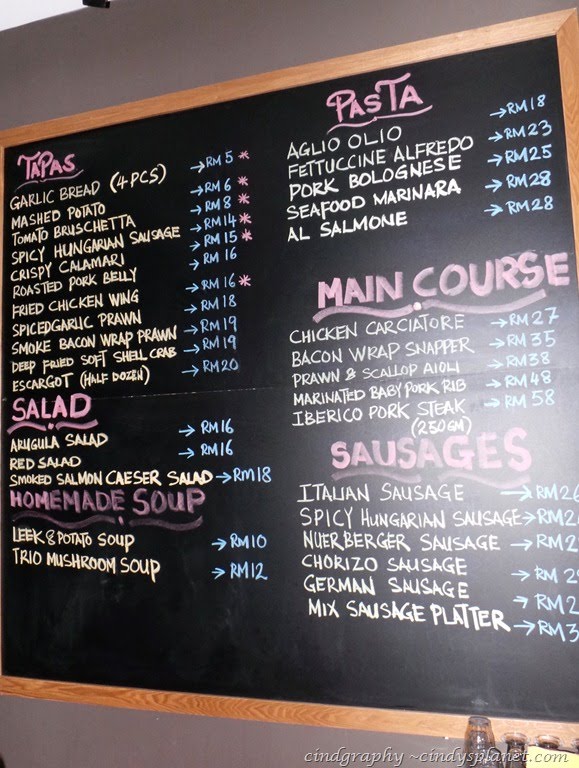 TAPAS
GARLIC BREAD (4 PCS) → RM 5 *
MASHED POTATO → RM 6 *
TOMATO BRUSCHETTA → RM 8 *
SPICY HUNGARIAN SAUSAGE → RM 14 *
CRISPY CALAMARI → RM 15 *
ROASTED PORK BELLY → RM 16
FRIED CHICKEN WING → RM 16 *
SPICEDGARLIC PRAWN → RM 18
SMOKE BACON WRAP PRAWN → RM 19
DEEP FRIED SOFT SHELL CRAB → RM 19
ESCARGOT (HALF DOZEN) → RM 20
SALAD
ARUGULA SALAD → RM 16
RED SALAD → RM 16
SMOKED SALMON CAESER SALAD → RM 18
HOMEMADE SOUP
LEEK & POTATO SOUP → RM 10
TRIO MUSHROOM SOUP → RM 12
PASTA
AGLIO OLIO → RM 18
FETTUCCINE ALFREDO → RM 23
PORK BOLOGNESE → RM 25
SEAFOOD MARINARA → RM 28
AL SALMONE → RM 28
MAIN COURSE
CHICKEN CARCIATORE → RM 27
BACON WRAP SNAPPER → RM 35
PRAWN & SCALLOP AIOLI → RM 38
MARINATED BABY PORK RIB → RM 48
IBERICO PORK STEAK → RM 58
(250GM)
SAUSAGES
ITALIAN SAUSAGE →
SPICY HUNGARIAN SAUSAGE →
NUERBERGER SAUSAGE →
CHORIZO SAUSAGE →
GERMAN SAUSAGE →
MIX SAUSAGE PLATTER →
cindgraphy ~cindysplanet.com